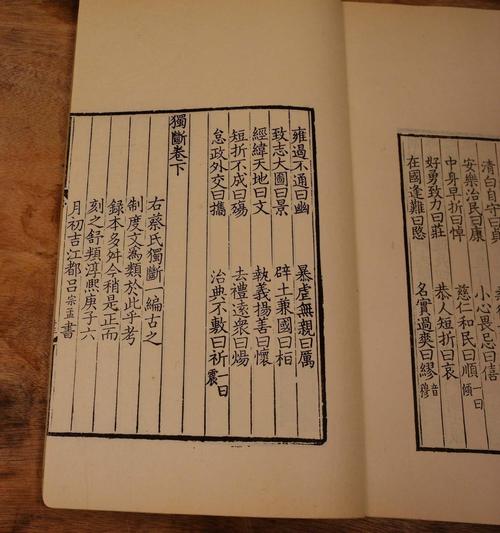 清白自守曰
安樂治民曰康　小心畏忌曰僖
中身早折曰悼　慈仁和民曰順一曰傾
好勇致力曰莊　恭人短折曰哀
在國逢難曰愍　名實過爽曰繆音穆
雍過不通曰幽　暴虐無親曰厲
致志大圖曰景　辟土兼國曰桓
經緯天地曰文　執義揚善曰懷
短折不成曰殤　去禮遠衆曰煬
怠政外交曰攜　治典不敷曰祈一曰震
獨斷卷下
右蔡氏獨斷一編古之
制度文為類於此乎考
錄本多舛今稍是正而
刻之舒頖淳熙庚子六
月初吉江都呂宗孟書